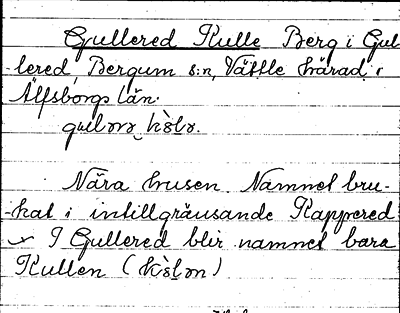 Gullered Kulle Berg i Gul-
lered, Bergum s:n, Vättle härad i
Älfsborgs län.
gulərə kə̀lə.
Nära husen. Namnet bru-
kat i intillgränsande Rappered
I Gullered blir namnet bara
Kullen (kə̀lən)